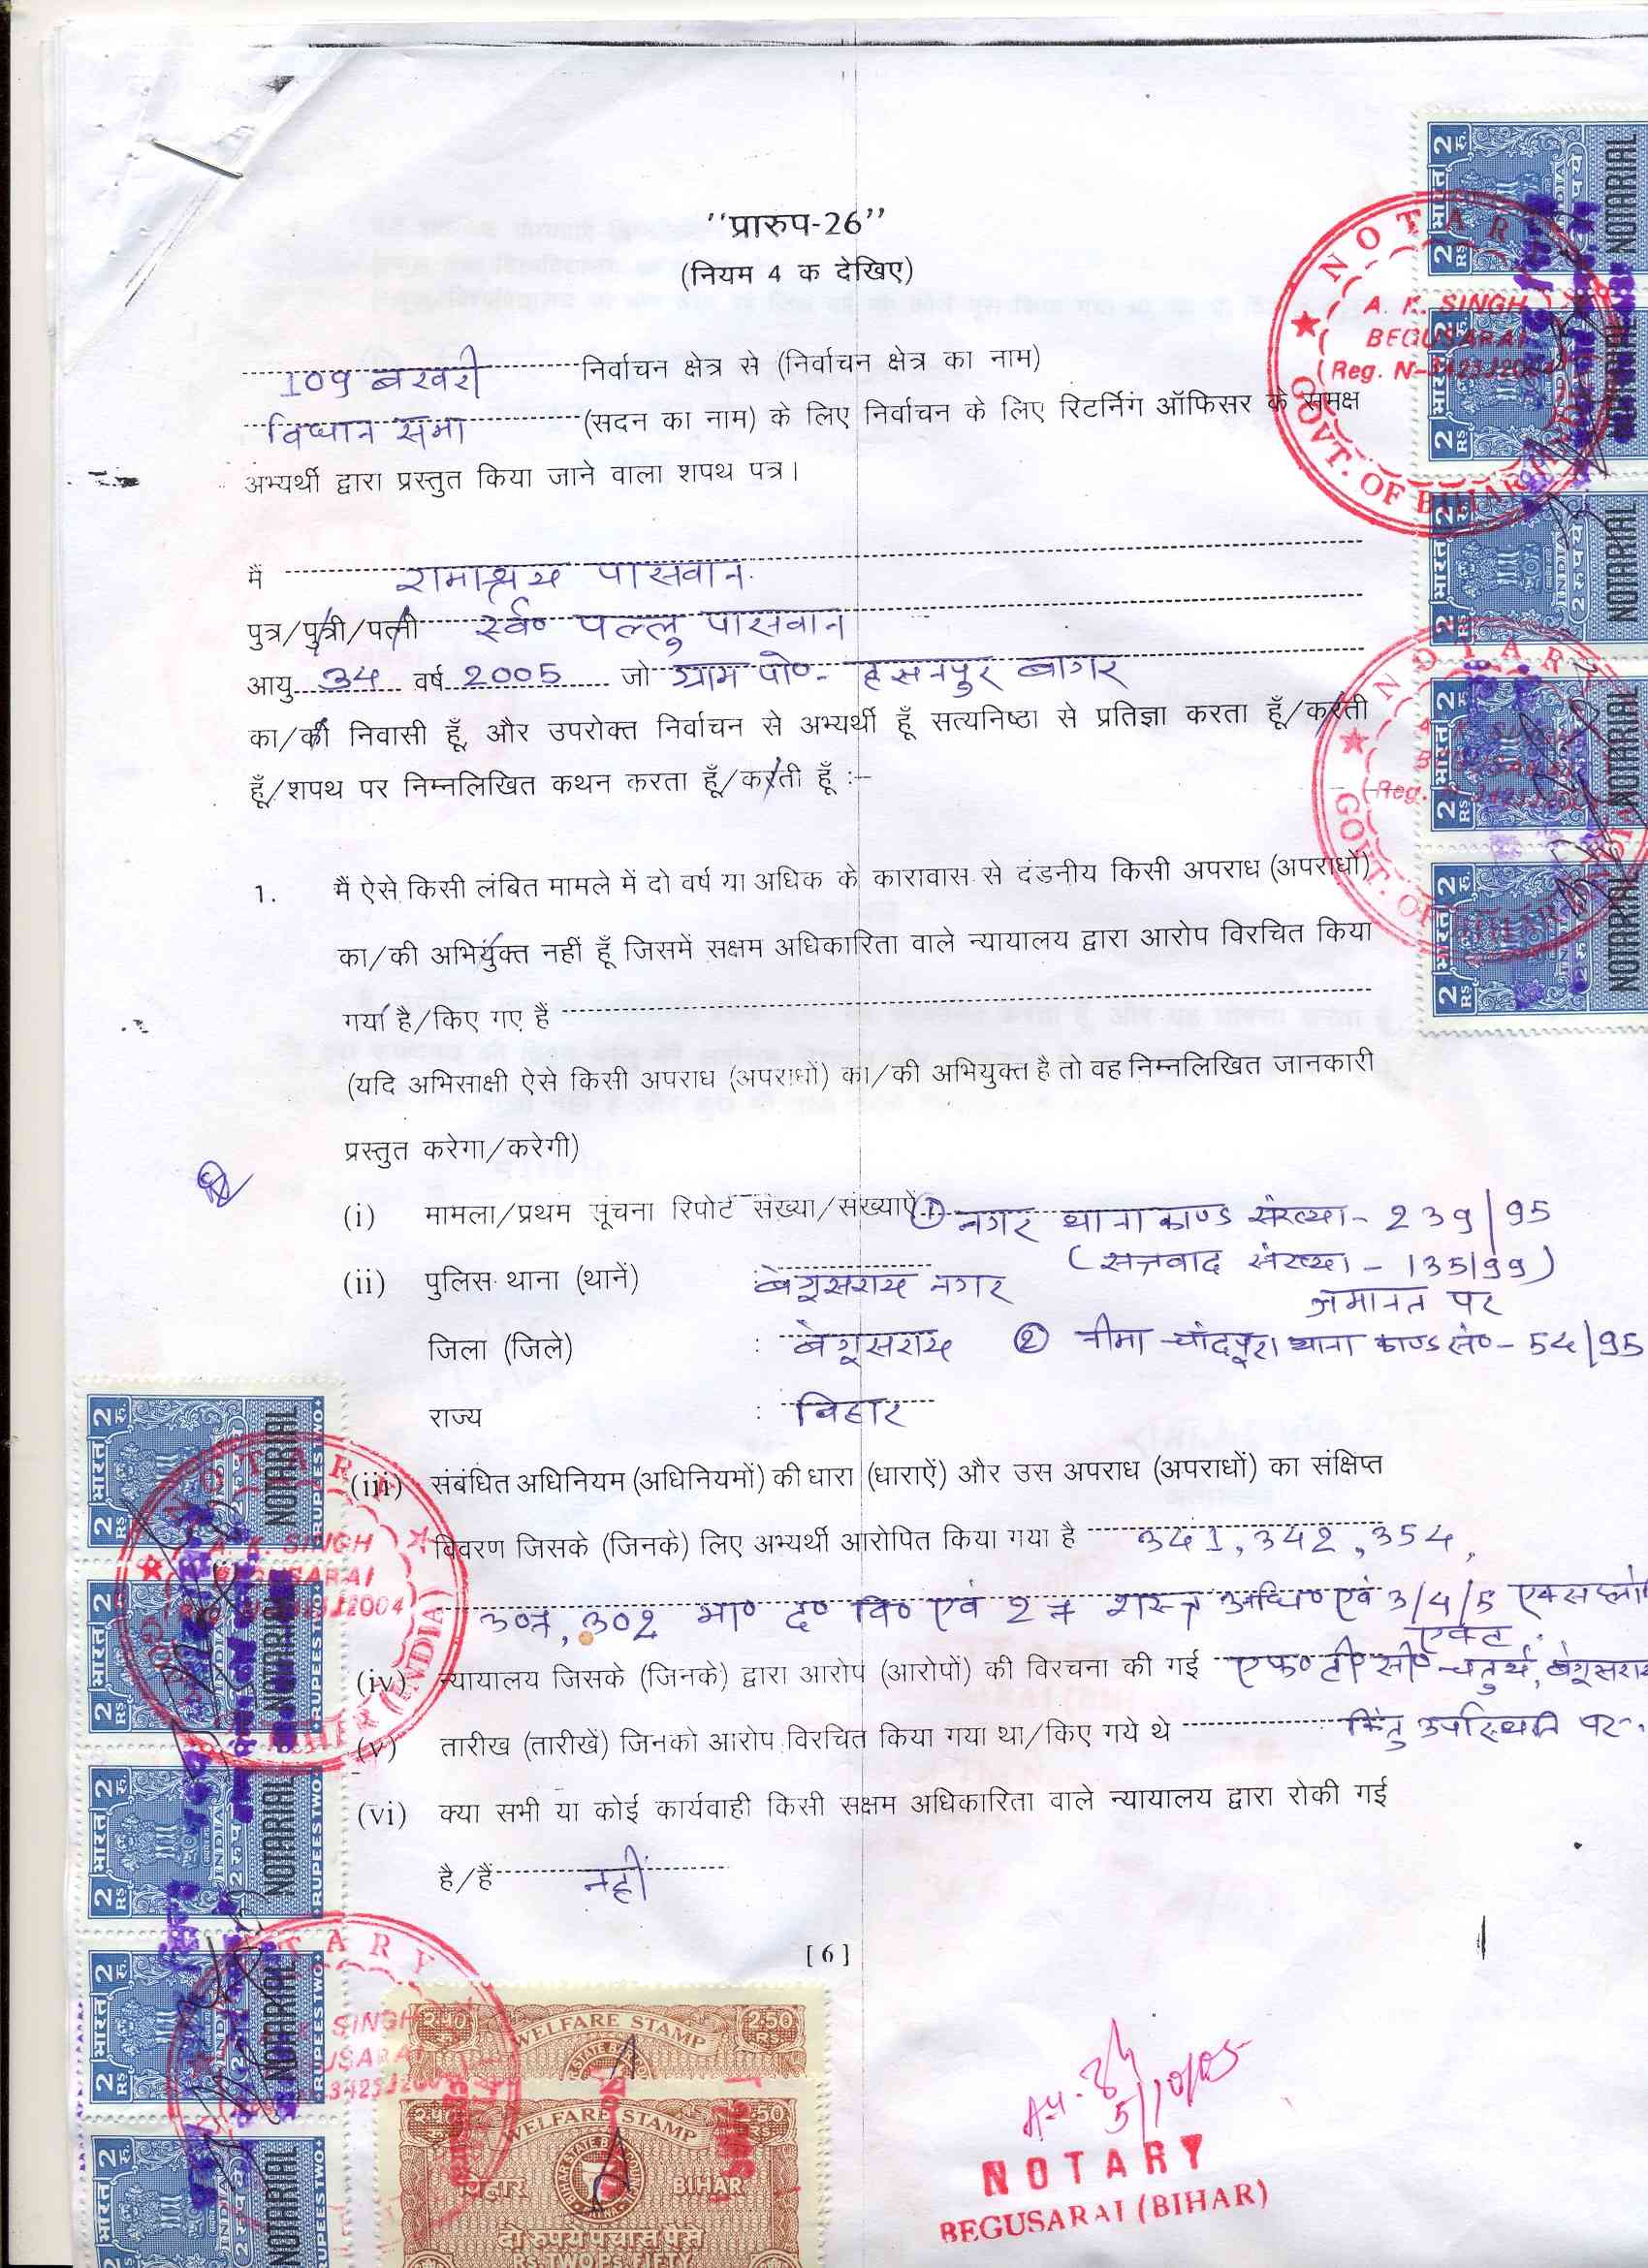 "प्रारुप-26"
(नियम 4 क देखिए)
109 बखरी निर्वाचन क्षेत्र से (निर्वाचन क्षेत्र का नाम)
विधान सभा (सदन का नाम) के लिए निर्वाचन के लिए रिटर्निंग ऑफिसर के समक्ष
अभ्यर्थी द्वारा प्रस्तुत किया जाने वाला शपथ पत्र।
मैं रामाश्रय पासवान
पुत्र/पुत्री/पत्नी स्व० पल्लु पासवान
आयु 34 वर्ष 2005 जो ग्राम पो०- हसनपुर बागर
का/की निवासी हूँ, और उपरोक्त निर्वाचन से अभ्यर्थी हूँ सत्यनिष्ठा से प्रतिज्ञा करता हूँ/करती
हूँ/शपथ पर निम्नलिखित कथन करता हूँ/करती हूँ :–
1. मैं ऐसे किसी लंबित मामले में दो वर्ष या अधिक के कारावास से दंडनीय किसी अपराध (अपराधों)
का/की अभियुक्त नहीं हूँ जिसमें सक्षम अधिकारिता वाले न्यायालय द्वारा आरोप विरचित किया
गया है/किए गए हैं
(यदि अभिसाक्षी ऐसे किसी अपराध (अपराधों) का/की अभियुक्त है तो वह निम्नलिखित जानकारी
प्रस्तुत करेगा/करेगी)
(i) मामला/प्रथम सूचना रिपोर्ट संख्या/संख्याऐं ① नगर थाना काण्ड संख्या- 239/95
(सत्रवाद संख्या - 135/99)
(ii) पुलिस थाना (थानें) : बेगूसराय नगर जमानत पर
जिला (जिले) : बेगूसराय ② नीमा चाँदपूरा थाना काण्ड सं०- 54/95
राज्य : बिहार
(iii) संबंधित अधिनियम (अधिनियमों) की धारा (धाराऐं) और उस अपराध (अपराधों) का संक्षिप्त
विवरण जिसके (जिनके) लिए अभ्यर्थी आरोपित किया गया है 341, 342, 354,
307, 302 भा० द० वि० एवं 27 शस्त्र अधि० एवं 3/4/5 एक्सप्लो
एक्ट
(iv) न्यायालय जिसके (जिनके) द्वारा आरोप (आरोपों) की विरचना की गई एफ० टी० सी० चतुर्थ, बेगूसराय
(v) तारीख (तारीखें) जिनको आरोप विरचित किया गया था/किए गये थे किंतु उपस्थिति पर
(vi) क्या सभी या कोई कार्यवाही किसी सक्षम अधिकारिता वाले न्यायालय द्वारा रोकी गई
है/हैं नहीं
[6]
5/10/05
NOTARY
BEGUSARAI (BIHAR)
NOTARY
A. K. SINGH
BEGUSARAI
GOVT. OF BIHAR
भारत
2 रु.
2 RS
INDIA
NOTARIAL
RUPEES TWO
WELFARE STAMP
2.50
बिहार
BIHAR
दो रुपये पचास पैसे
RS. TWO PS. FIFTY